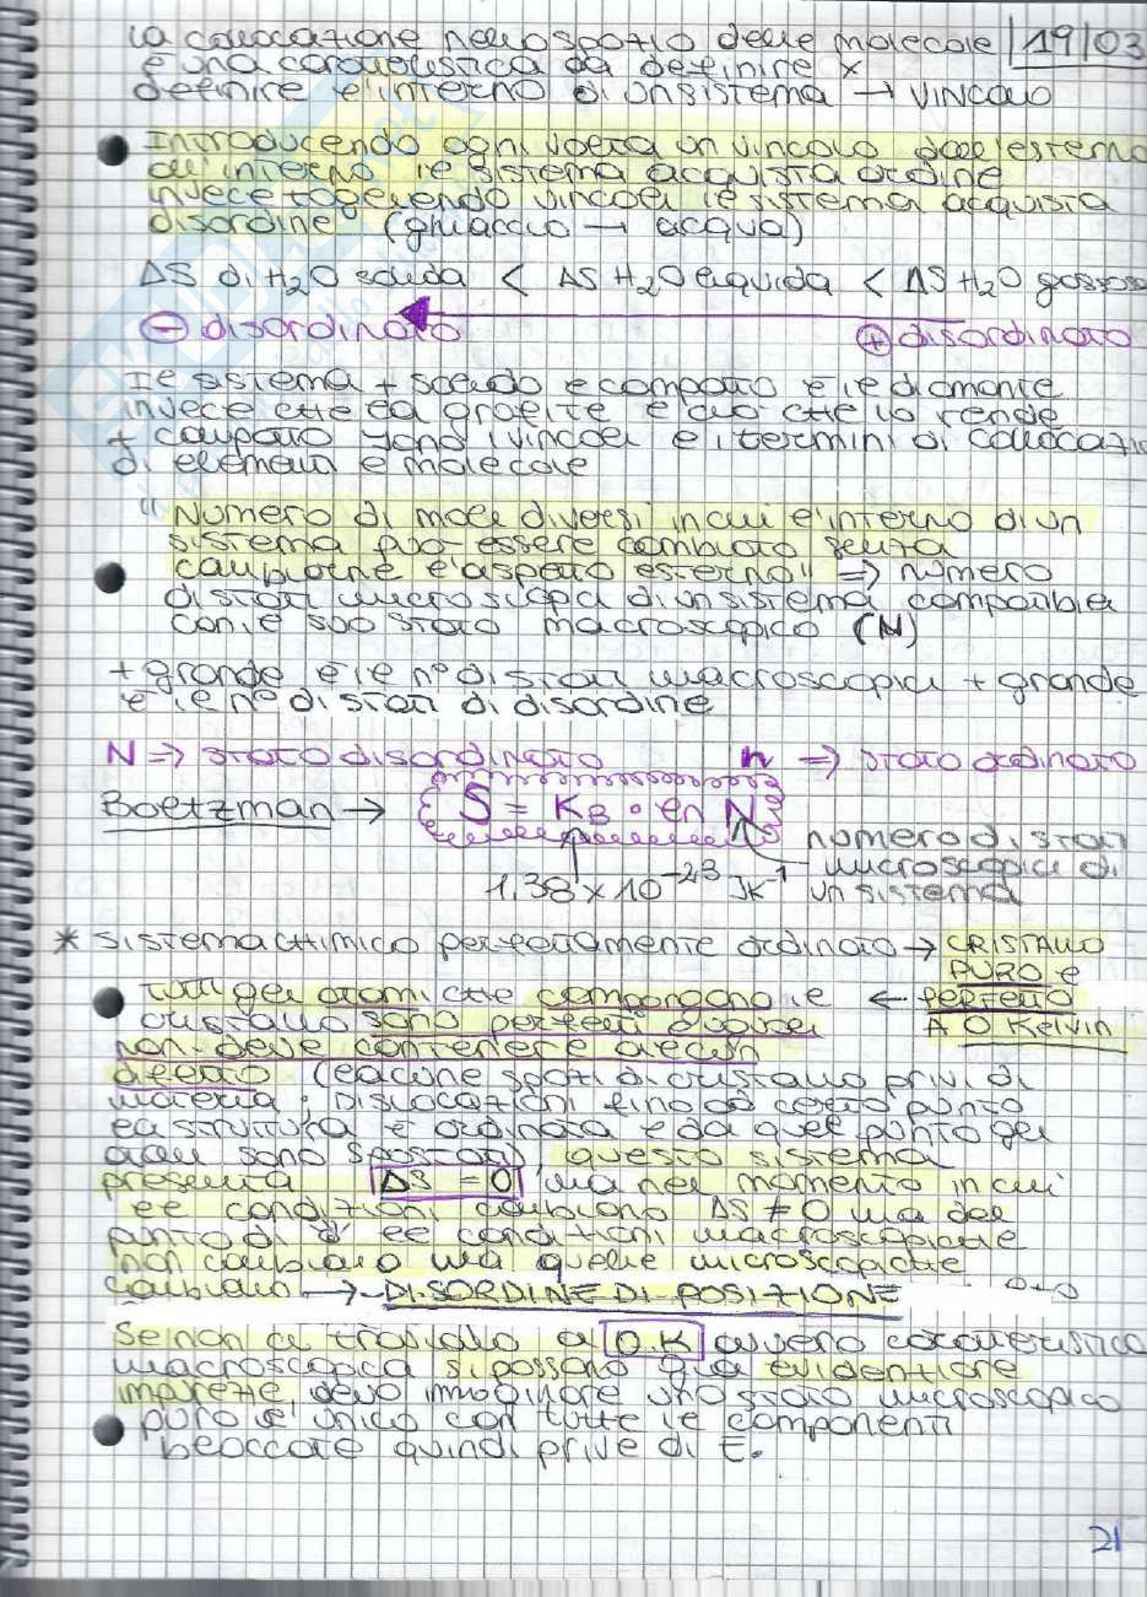 la collocazione nello spazio delle molecole | 19/03
è una caratteristica da definire x
definire l'interno di un sistema → VINCOLO
Introducendo ogni volta un vincolo dall'esterno
all'interno il sistema acquista ordine
invece togliendo vincoli il sistema acquista
disordine (ghiaccio → acqua)
ΔS di H₂O solida < ΔS H₂O liquida < ΔS H₂O gassosa
⊖ disordinato ⊕ disordinato
Il sistema + solido e compatto è il diamante
invece che la grafite e ciò che lo rende
+ compatto sono i vincoli e i termini di collocazio
di elementi e molecole
"Numero di modi diversi in cui l'interno di un
sistema può essere cambiato senza
cambiarne l'aspetto esterno" => numero
di stati microscopici di un sistema compatibili
con il suo stato macroscopico (N)
+ grande è il n° di stati macroscopici + grande
è il n° di stati di disordine
N => stato disordinato n => stato ordinato
Boltzman → S = KB • ln N
numero di stati
microscopici di
1,38 x 10⁻²³ JK⁻¹ un sistema
* sistema chimico perfettamente ordinato → CRISTALLO
PURO e
tutti gli atomi che compongono il ← perfetto
cristallo sono perfetti e uguali A 0 Kelvin
non deve contenere alcun
difetto (lacune spazi di cristallo privi di
materia; Dislocazioni fino ad certo punto
la struttura è ordinata e da quel punto gli
atomi sono spostati), questo sistema
presenta ΔS = 0 ma nel momento in cui
le condizioni cambiano ΔS ≠ 0 ma dal
punto di le condizioni macroscopiche
non cambiano ma quelle microscopiche
cambiano → DISORDINE DI POSIZIONE
Se non ci troviamo a 0.K ovvero caratteristica
macroscopica si possono già evidenziare
impurezze, devo immaginare uno stato microscopico
puro e unico con tutte le componenti
bloccate quindi prive di E.
21